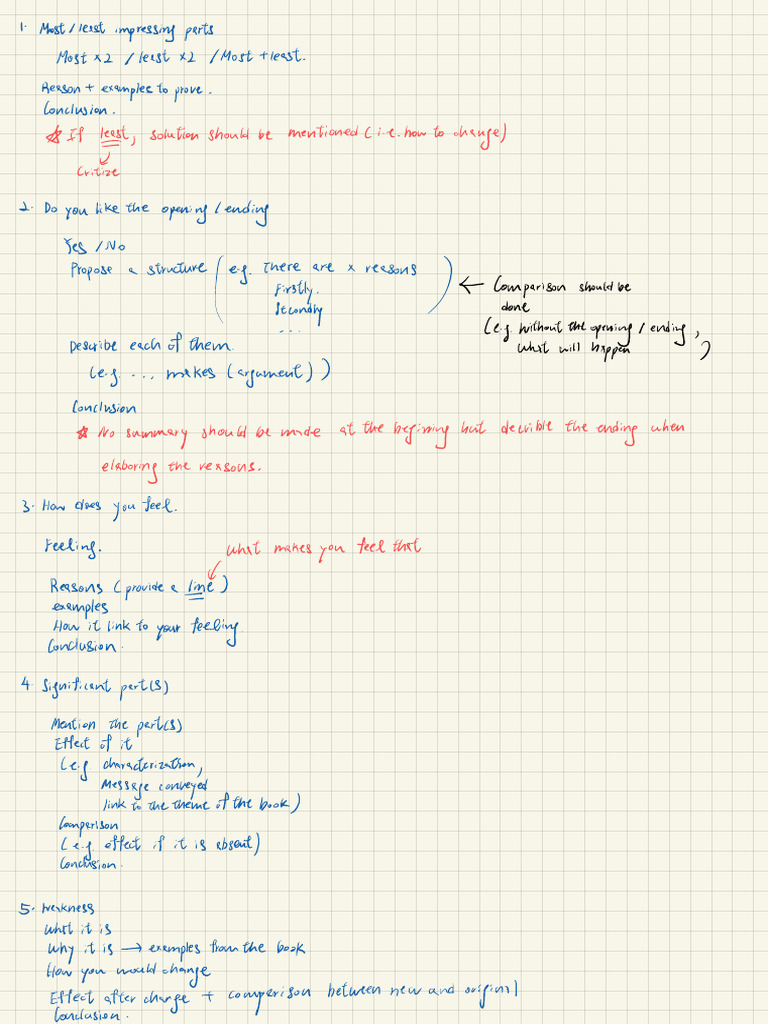 1. Most / least impressing parts
Most x2 / least x2 / Most + least.
Reason + examples to prove.
Conclusion.
☆ If least, solution should be mentioned (i.e. how to change)
Critize
2. Do you like the opening / ending
Yes / No
Propose a structure (e.g. There are x reasons
Firstly.
Secondly
...)
← Comparison should be
done
(e.g. without the opening / ending,
what will happen)
Describe each of them.
(e.g. ... makes (argument))
Conclusion
☆ No summary should be made at the begining but describe the ending when
elaboring the reasons.
3. How does you feel.
Feeling.
what makes you feel that
Reasons (provide a line)
examples
How it link to your feeling
Conclusion.
4. Significant part(s)
Mention the part(s)
Effect of it
(e.g characterization,
Message conveyed
link to the theme of the book)
Comparison
(e.g. effect if it is absent)
Conclusion.
5. Weakness
What it is
Why it is → examples from the book
How you would change
Effect after change + comparison between new and original
Conclusion.